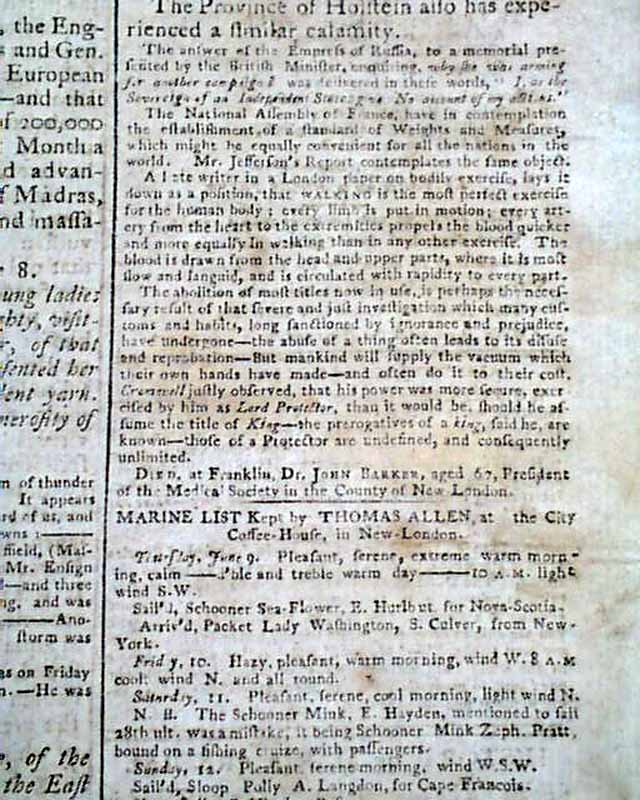 , the Eng-
s and Gen.
European
—and that
of 200,000
Month a
d advan-
f Madras,
nd massa-
8.
ung ladies
ghty, visit-
r, of that
sented her
lent yarn.
nerosity of
m of thunder
It appears
rd of us, and
wns :———
ffield, (Mas-
Mr. Ensign
—and three
ng, and was
——Ano-
storm was
as on Friday
n.—He was
, of the
the East
The Province of Holstein also has expe-
rienced a similar calamity.
The answer of the Empress of Russia, to a memorial pre-
sented by the British Minister, enquiring, why she was arming
for another campaign? was delivered in these words, " I, as the
Sovereign of an Independent State, give No account of my actions."
The National Assembly of France, have in contemplation
the establishment of a standard of Weights and Measures,
which might be equally convenient for all the nations in the
world. Mr. Jefferson's Report contemplates the same object.
A late writer in a London paper on bodily exercise, lays it
down as a position, that WALKING is the most perfect exercise
for the human body ; every limb is put in motion ; every art-
ery from the heart to the extremities propels the blood quicker
and more equally in walking than in any other exercise. The
blood is drawn from the head and upper parts, where it is most
slow and languid, and is circulated with rapidity to every part.
The abolition of most titles now in use, is perhaps the neces-
sary result of that severe and just investigation which many cus-
toms and habits, long sanctioned by ignorance and prejudice,
have undergone—the abuse of a thing often leads to its disuse
and reprobation—But mankind will supply the vacuum which
their own hands have made—and often do it to their cost.
Cromwell justly observed, that his power was more secure, exer
cised by him as Lord Protector, than it would be, should he as-
sume the title of King—the prerogatives of a king, said he, are
known—those of a Protector are undefined, and consequently
unlimited.
DIED, at Franklin, Dr. JOHN BARKER, aged 67, President
of the Medical Society in the County of New London.
MARINE LIST Kept by THOMAS ALLEN, at the City
Coffee-House, in New-London.
Thursday, June 9. Pleasant, serene, extreme warm morn-
ing, calm —— and treble warm day———10 A.M. light
wind S.W.
Sail'd, Schooner Sea-Flower, E. Hurlbut for Nova-Scotia.
Arriv'd, Packet Lady Washington, S. Culver, from New-
York.
Friday, 10. Hazy, pleasant, warm morning, wind W. 8 A.M
cool: wind N. and all round.
Saturday, 11. Pleasant, serene, cool morning, light wind N.
N. B. The Schooner Mink, E. Hayden, mentioned to sail
28th ult. was a mistake, it being Schooner Mink Zeph. Pratt,
bound on a fishing cruize, with passengers.
Sunday, 12. Pleasant serene morning, wind W.S.W.
Sail'd, Sloop Polly A. Langdon, for Cape Francois.